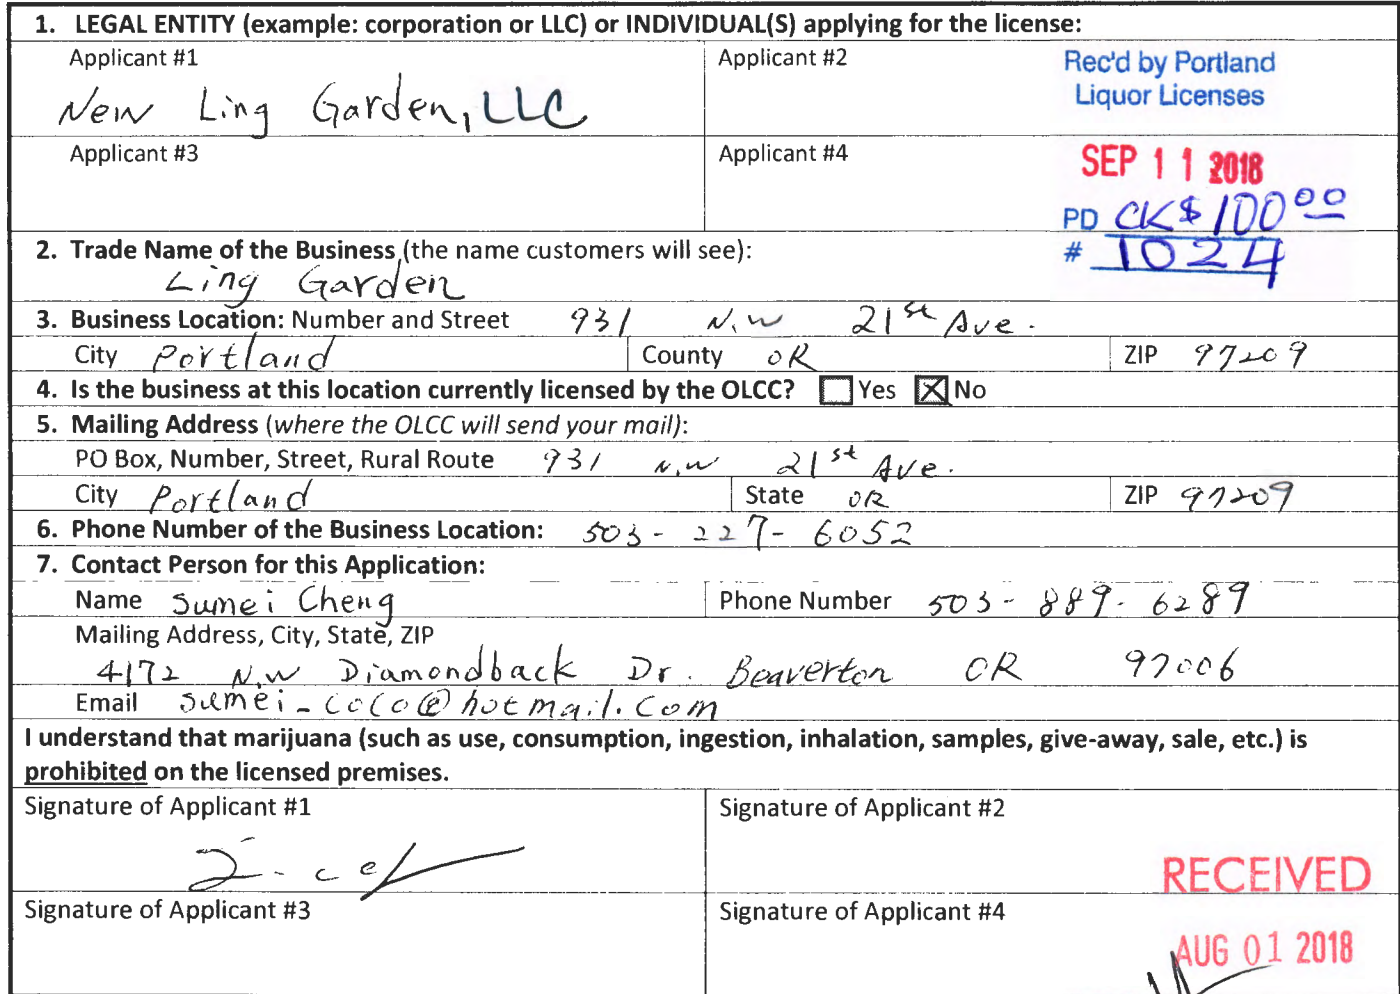 1. LEGAL ENTITY (example: corporation or LLC) or INDIVIDUAL(S) applying for the license:
Applicant #1
New Ling Garden, LLC
Applicant #2
Rec'd by Portland
Liquor Licenses
Applicant #3
Applicant #4
SEP 11 2018
PD CK $ 100 00
# 1024
2. Trade Name of the Business (the name customers will see):
Ling Garden
3. Business Location: Number and Street 931 N.W 21st Ave.
City Portland County OR ZIP 97209
4. Is the business at this location currently licensed by the OLCC? Yes No
5. Mailing Address (where the OLCC will send your mail):
PO Box, Number, Street, Rural Route 931 N.W 21st Ave.
City Portland State OR ZIP 97209
6. Phone Number of the Business Location: 503-227-6052
7. Contact Person for this Application:
Name Sumei Cheng Phone Number 503-889-6289
Mailing Address, City, State, ZIP
4172 N.W Diamondback Dr. Beaverton OR 97006
Email sumei_coco@hotmail.com
I understand that marijuana (such as use, consumption, ingestion, inhalation, samples, give-away, sale, etc.) is
prohibited on the licensed premises.
Signature of Applicant #1
Signature of Applicant #2
RECEIVED
Signature of Applicant #3
Signature of Applicant #4
AUG 01 2018